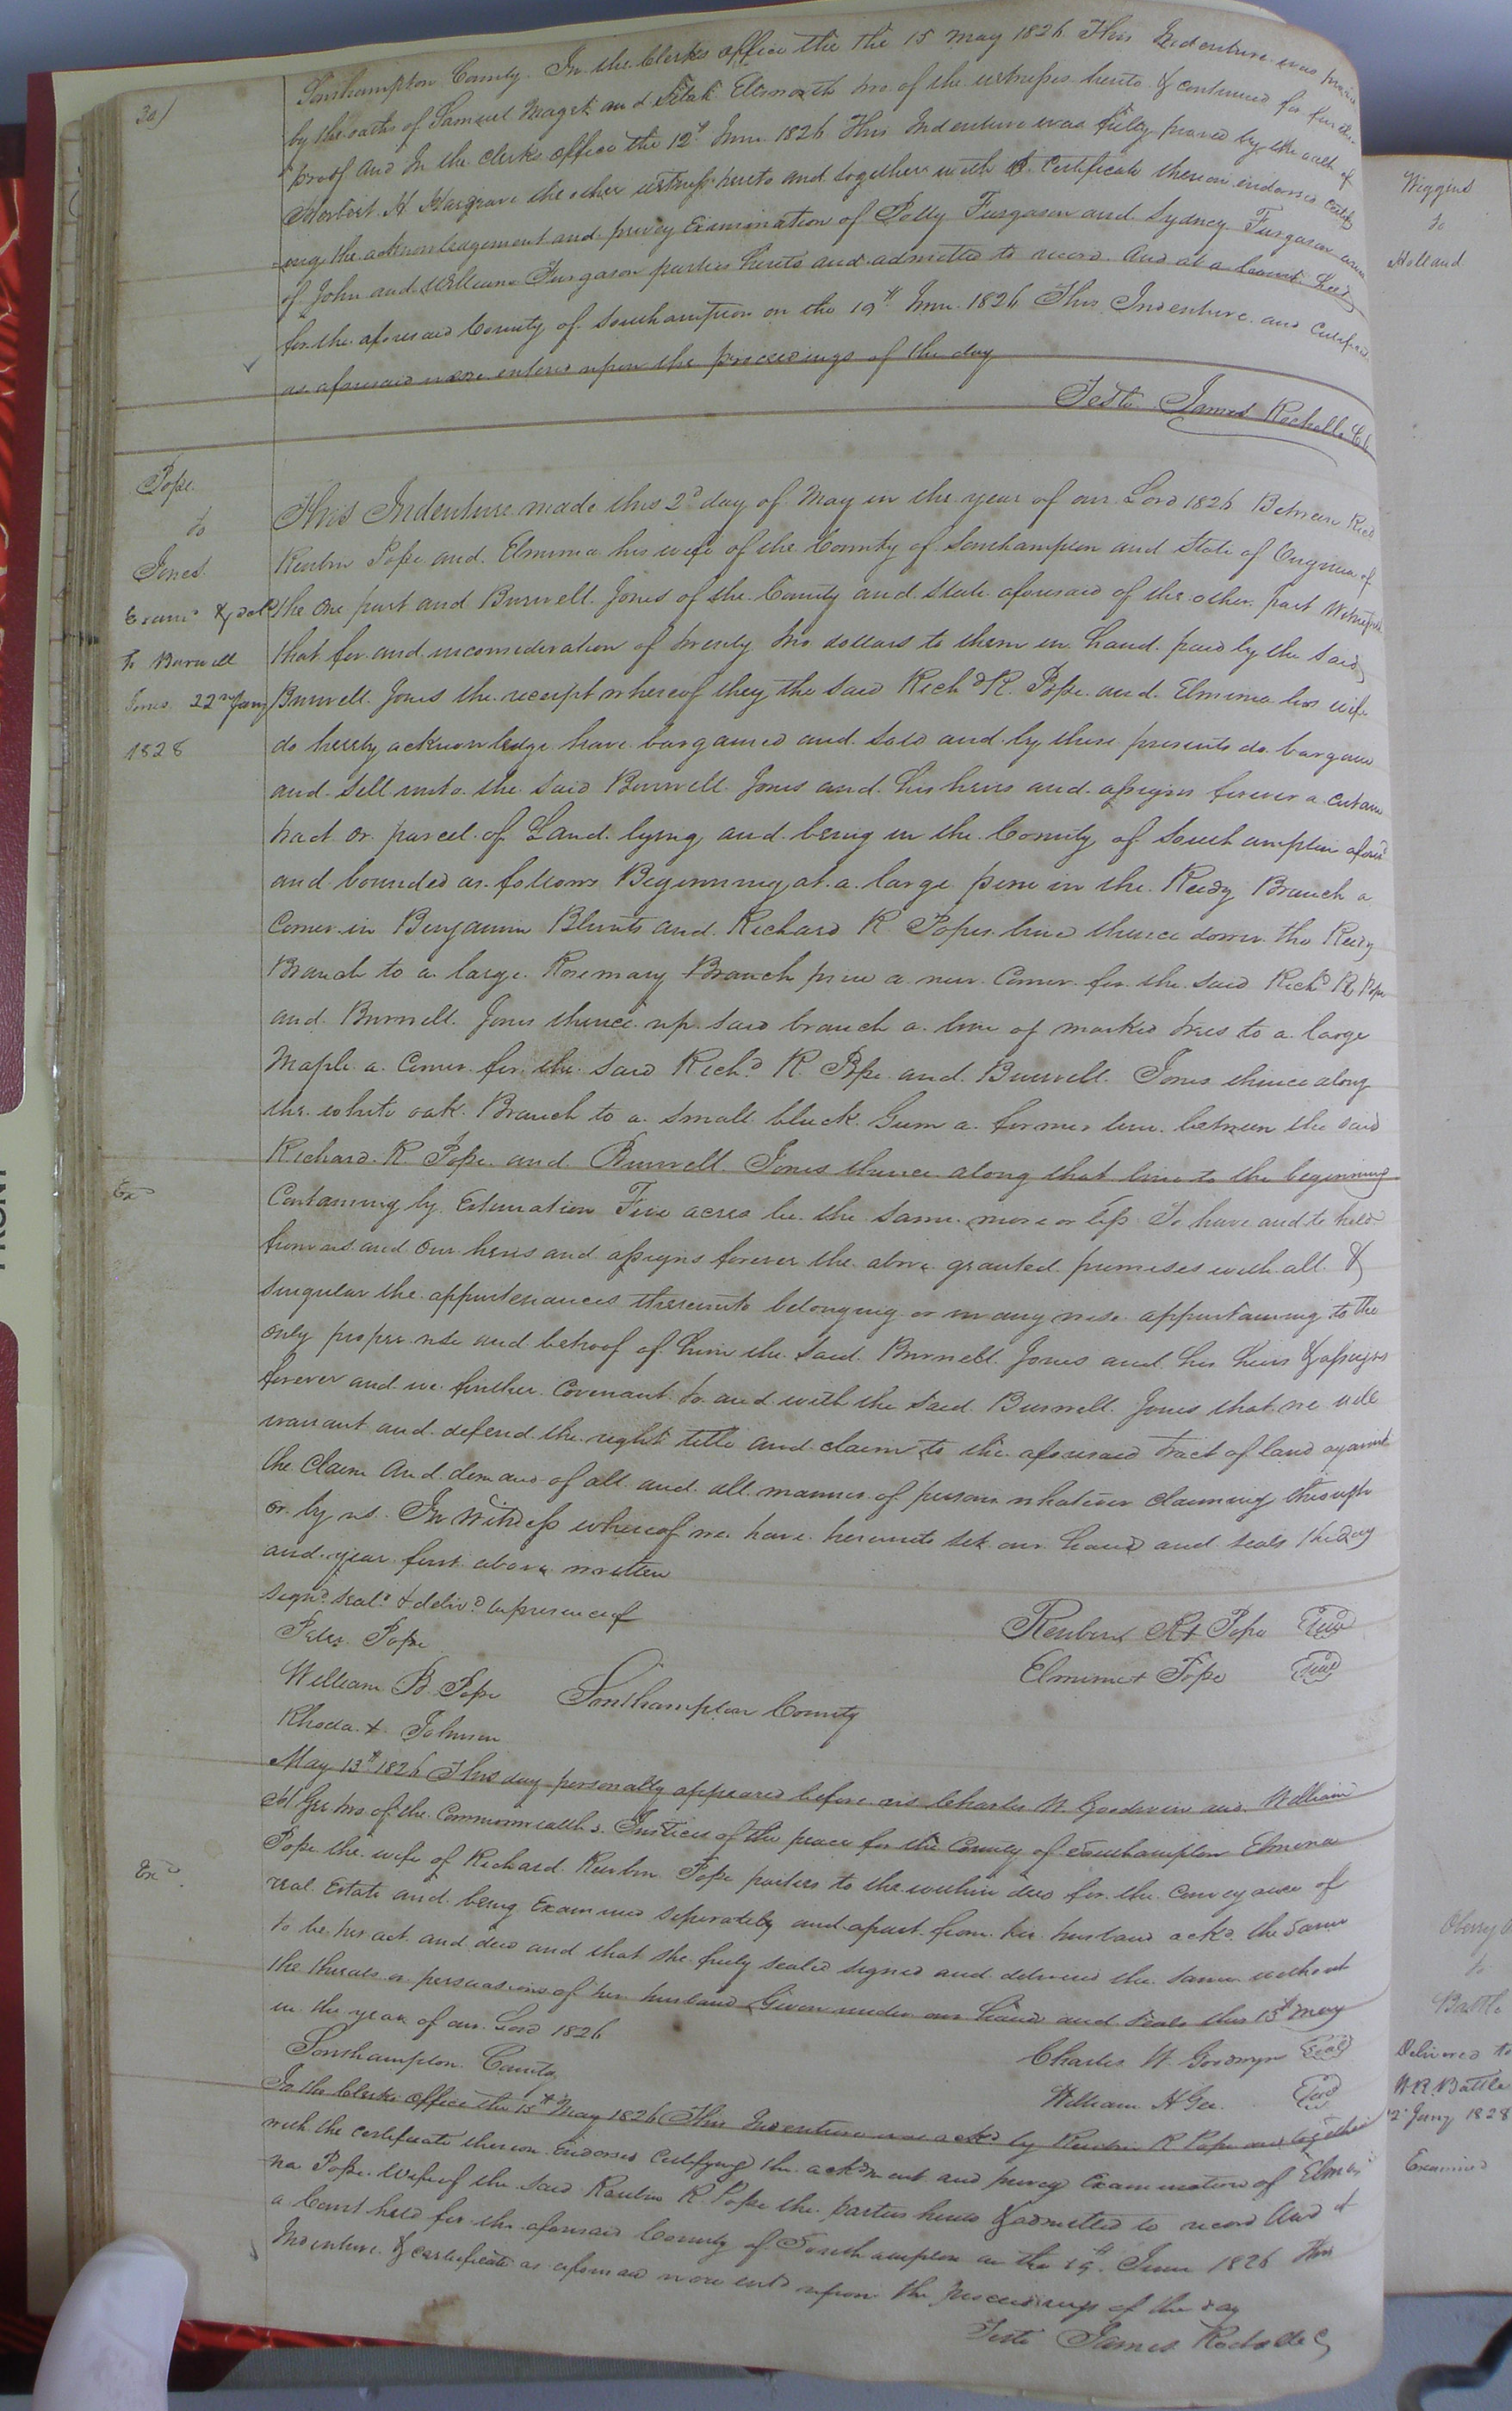 30)
Southampton County In the Clerks office the The 15 May 1826 This Indenture was
by the oaths of Samuel Maget and Elsworth two of the witnesses hereto & continued for further
proof and In the clerks office the 12th June 1826 This Indenture was fully proved by the oath of
Herbert H Hargrave the other witness hereto and together with a Certificate thereon endorsed
the acknowledgement and privey Examination of Polly Furgason and Sydney Furgason
of John and William Furgason parties hereto and admitted to record And at a Court held
for the aforesaid County of Southampton on the 19th June 1826 This Indenture and
as aforesaid were entered upon the proceedings of the day
Teste James Rochelle
Pope
to
Jones
Exam'd & del'd
to Burwell
Jones 22nd Jany
1828
This Indenture made this 2d day of May in the year of our Lord 1826 Between Richd
Reubin Pope and Elmina his wife of the County of Southampton and State of Virginia of
the one part and Burwell Jones of the County and State aforesaid of the other part Witnesseth
that for and inconsideration of twenty two dollars to them in hand paid by the said
Burwell Jones the receipt whereof they the said Richd R. Pope and Elmina his wife
do hereby acknowledge have bargained and sold and by these presents do bargain
and sell unto the said Burwell Jones and his heirs and assigns forever a certain
tract or parcel of Land lying and being in the County of Southampton afores'd
and bounded as follows Beginning at a large pine in the Reedy Branch a
Corner in Benjamin Blunts and Richard R Popes line thence down the Reedy
Branch to a large Rosemary Branch pine a new Corner for the said Richd R Pope
and Burwell Jones thence up said branch a line of marked trees to a large
Maple a Corner for the said Richd R. Pope and Burwell Jones thence along
the white oak Branch to a small black Gum a former line between the said
Richard R Pope and Burwell Jones thence along that line to the beginning
Ex'd
Containing by Estimation Five acres be the same more or less To have and to hold
from us and our heirs and assigns forever the above granted premises with all &
singular the appurtenances thereunto belonging or in any wise appurtaining to the
only proper use and behoof of him the said Burwell Jones and his heirs & assigns
forever and we further Covenant to and with the said Burwell Jones that we will
warrant and defend the right title and claim to the aforesaid tract of land against
the claim and demand of all and all manner of persons whatever claiming through
or by us. In Witness whereof we have hereunto set our hand and seals the day
and year first above written
sign'd seal'd & deliv'd in presence of
Peter Pope
Reubin R+ Pope Seal
William B. Pope
Elmina+ Pope Seal
Rhoda + Johnson
Southampton County
May 13th 1826 This day personally appeared before us Charles W Goodwin and William
H Gee two of the Commonwealths Justices of the peace for the County of Southampton Elmina
Ex'd
Pope the wife of Richard Reubin Pope parties to the within deed for the Conveyance of
real Estate and being Examined seperately and apart from her husband ack'd the same
to be her act and deed and that she freely sealed signed and delivered the same without
the threats or persuasions of her husband Given under our hand and seals this 13th May
in the year of our Lord 1826
Charles W. Goodwyn Seal
William H Gee Seal
Southampton County
In the Clerks Office the 15th May 1826 This Indenture was ack'd by Reubin R Pope and together
with the certificate thereon Endorsed Certifying the ackdment and privey Examination of Elmi
na Pope wife of the said Reubin R Pope the parties hereto & admitted to record And at
a Court held for the aforesaid County of Southampton on the 19th June 1826 This
Indenture & certificate as aforesaid were ent'd upon the proceedings of the day
Teste James Rochelle C
Wiggins
to
Holland
to
Battle
Delivered to
W.R. Battle
Jany 1828
Examined